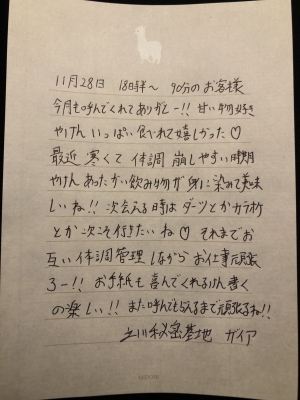 11月28日 18時半〜 90分のお客様
今月も呼んでくれてありがとー!! 甘い物好き
やけん いっぱい食べれて嬉しかった♡
最近 寒くて 体調 崩しやすい時期
やけん あったかい飲み物が 身に染みて美味
しいね!! 次会える時は ダーツとかカラオケ
とか 次こそ行きたいね♡ それまでお
互い 体調管理 しながら お仕事頑張
ろー!! お手紙も 喜んでくれるけん 書く
の楽しい!! また呼んでもらえるまで頑張るね!!
秘密基地 ガイア